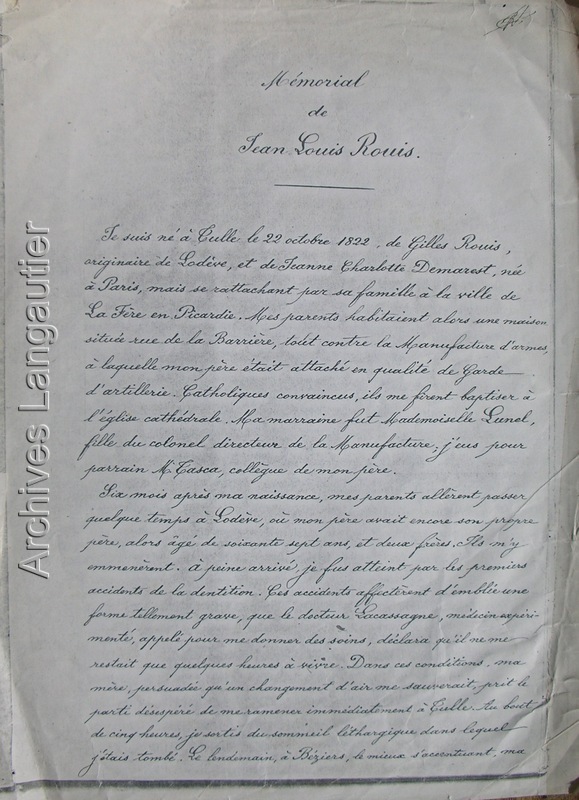 Mémorial
de
Jean Louis Rouis.
Je suis né à Tulle le 22 octobre 1822, de Gilles Rouis,
originaire de Lodève, et de Jeanne Charlotte Demarest, née
à Paris, mais se rattachant par sa famille à la ville de
La Fère en Picardie. Mes parents habitaient alors une maison
située rue de la Barrière, tout contre la Manufacture d'armes,
à laquelle mon père était attaché en qualité de Garde
d'artillerie. Catholiques convaincus, ils me firent baptiser à
l'église cathédrale. Ma marraine fut Mademoiselle Lunel,
fille du colonel directeur de la Manufacture; j'eus pour
parrain Mr Tasca, collègue de mon père.
Six mois après ma naissance, mes parents allèrent passer
quelque temps à Lodève, où mon père avait encore son propre
père, alors âgé de soixante sept ans, et deux frères. Ils m'y
emmenèrent. à peine arrivé, je fus atteint par les premiers
accidents de la dentition. Ces accidents affectèrent d'emblée une
forme tellement grave, que le docteur Lacassagne, médecin expéri-
menté, appelé pour me donner des soins, déclara qu'il ne me
restait que quelques heures à vivre. Dans ces conditions ma
mère, persuadée qu'un changement d'air me sauverait, prit le
parti désespéré de me ramener immédiatement à Tulle. Au bout
de cinq heures, je sortis du sommeil léthargique dans lequel
j'étais tombé. Le lendemain, à Béziers, le mieux s'accentuant, ma
Archives Langautier